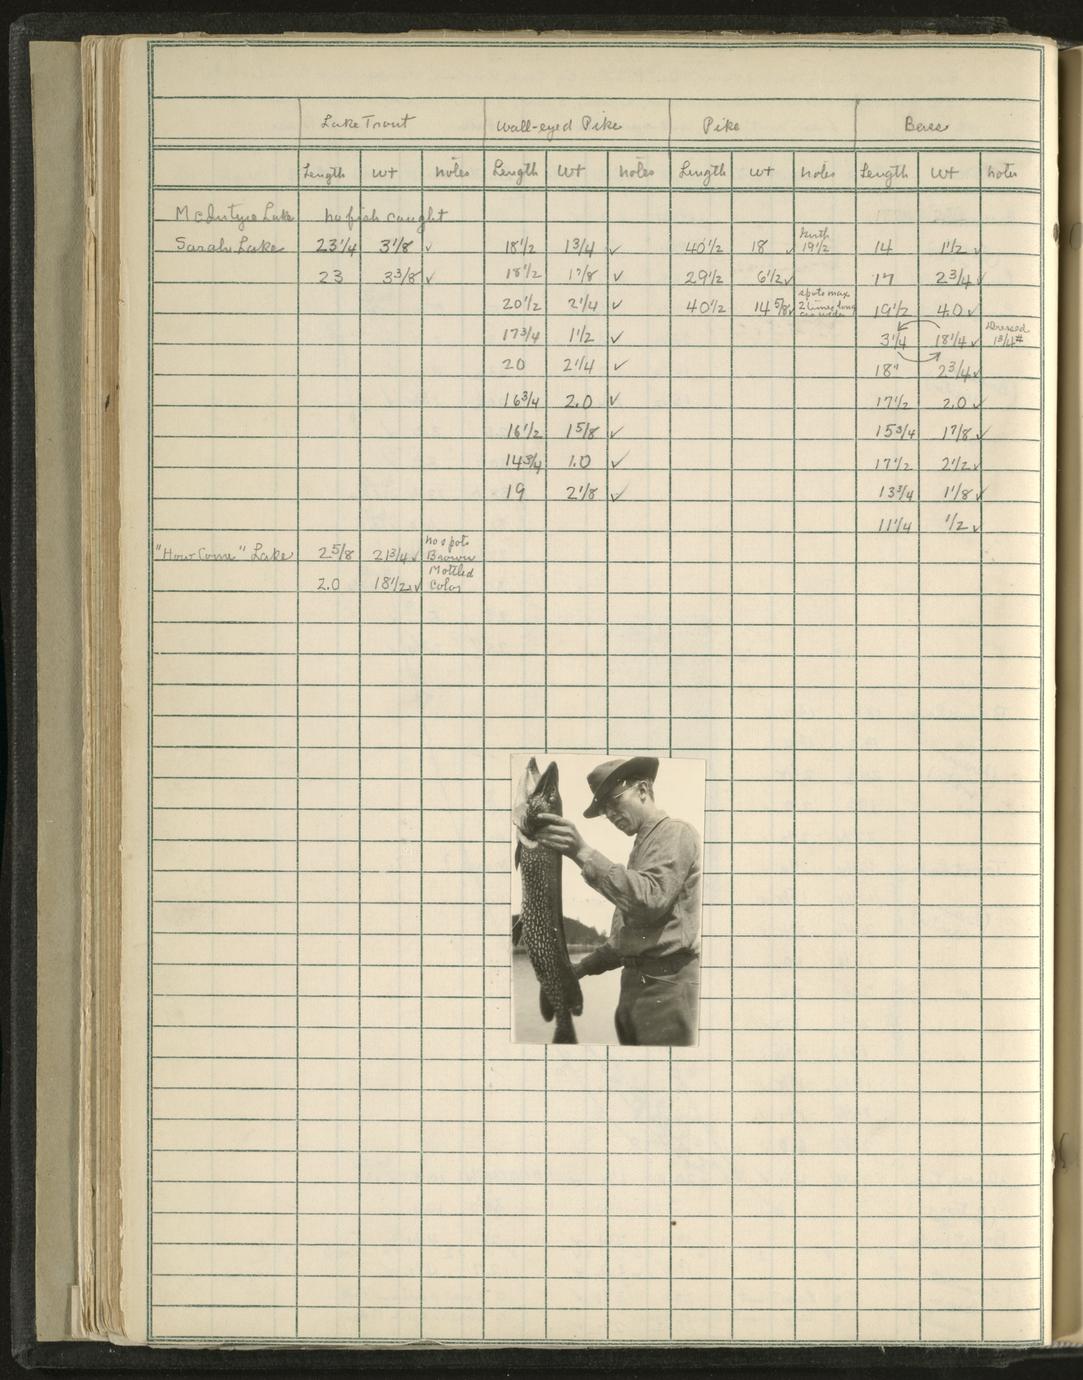 Lake Trout Wall-eyed Pike Pike Bass
Length wt notes Length wt notes Length wt notes Length wt notes
McIntyre Lake no fish caught
Sarah Lake 23 1/4 3 1/8 ✓ 18 1/2 1 3/4 ✓ 40 1/2 18 ✓ Girth 19 1/2 14 1 1/2 ✓
23 3 3/8 ✓ 18 1/2 1 7/8 ✓ 29 1/2 6 1/2 ✓ 17 2 3/4 ✓
20 1/2 2 1/4 ✓ 40 1/2 14 5/8 ✓ spots max 2 times long as wide 19 1/2 4.0 ✓
17 3/4 1 1/2 ✓ 3 1/4 18 1/4 ✓ Dressed 1 3/4 #
20 2 1/4 ✓ 18" 2 3/4 ✓
16 3/4 2.0 ✓ 17 1/2 2.0 ✓
16 1/2 1 5/8 ✓ 15 3/4 1 7/8 ✓
14 3/4 1.0 ✓ 17 1/2 2 1/2 ✓
19 2 1/8 ✓ 13 3/4 1 1/8 ✓
11 1/4 1/2 ✓
"How Come" Lake 2 5/8 21 3/4 ✓ no spots Brown
2.0 18 1/2 ✓ Mottled Color